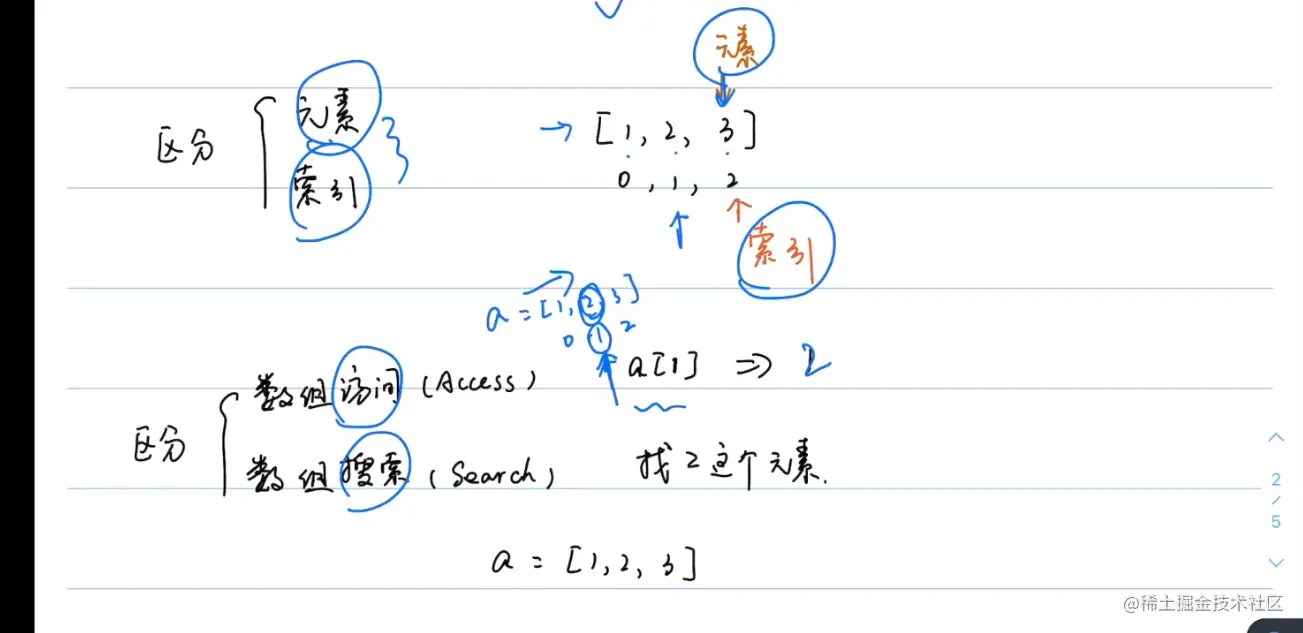 元素
区分
元素
索引
[1, 2, 3]
0, 1, 2
索引
a=[1, 2, 3]
0 1 2
区分
数组访问 (Access)
a[1] => 2
数组搜索 (Search)
找2这个元素.
a = [1, 2, 3]
2
/
5
@稀土掘金技术社区